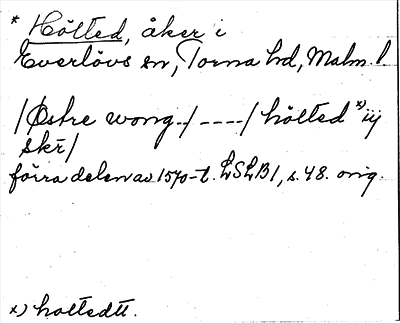 * Hölted, åker i
Everlövs sn, Torna hd, Malm. l.
/Østre wong./ ----/ hölted x) iij
skr̄/
förra delen av 1570-t. LSLB1, s. 48. orig.
x) holtedtt.